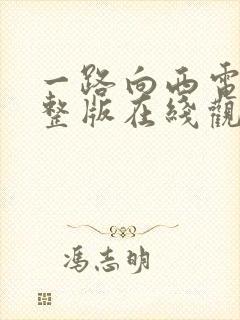 一路向西電
整版在綫觀
馮志明